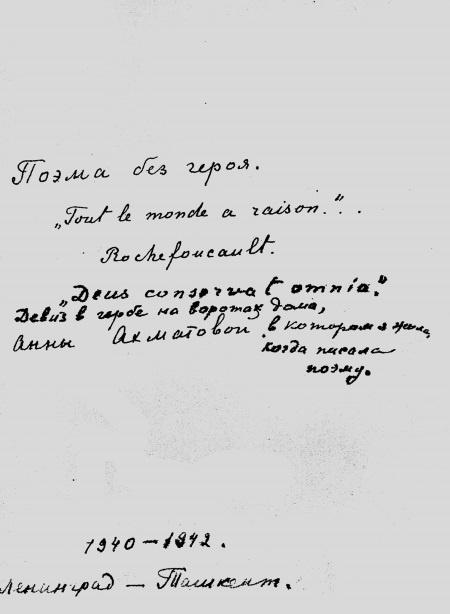 Поэма без героя.
„Tout le monde a raison.“..
Rochefoucault.
„Deus conservat omnia.“
Девиз в гербе на воротах дома,
Анны Ахматовой. в котором я жила,
когда писала
поэму.
1940 — 1942.
Ленинград — Ташкент.